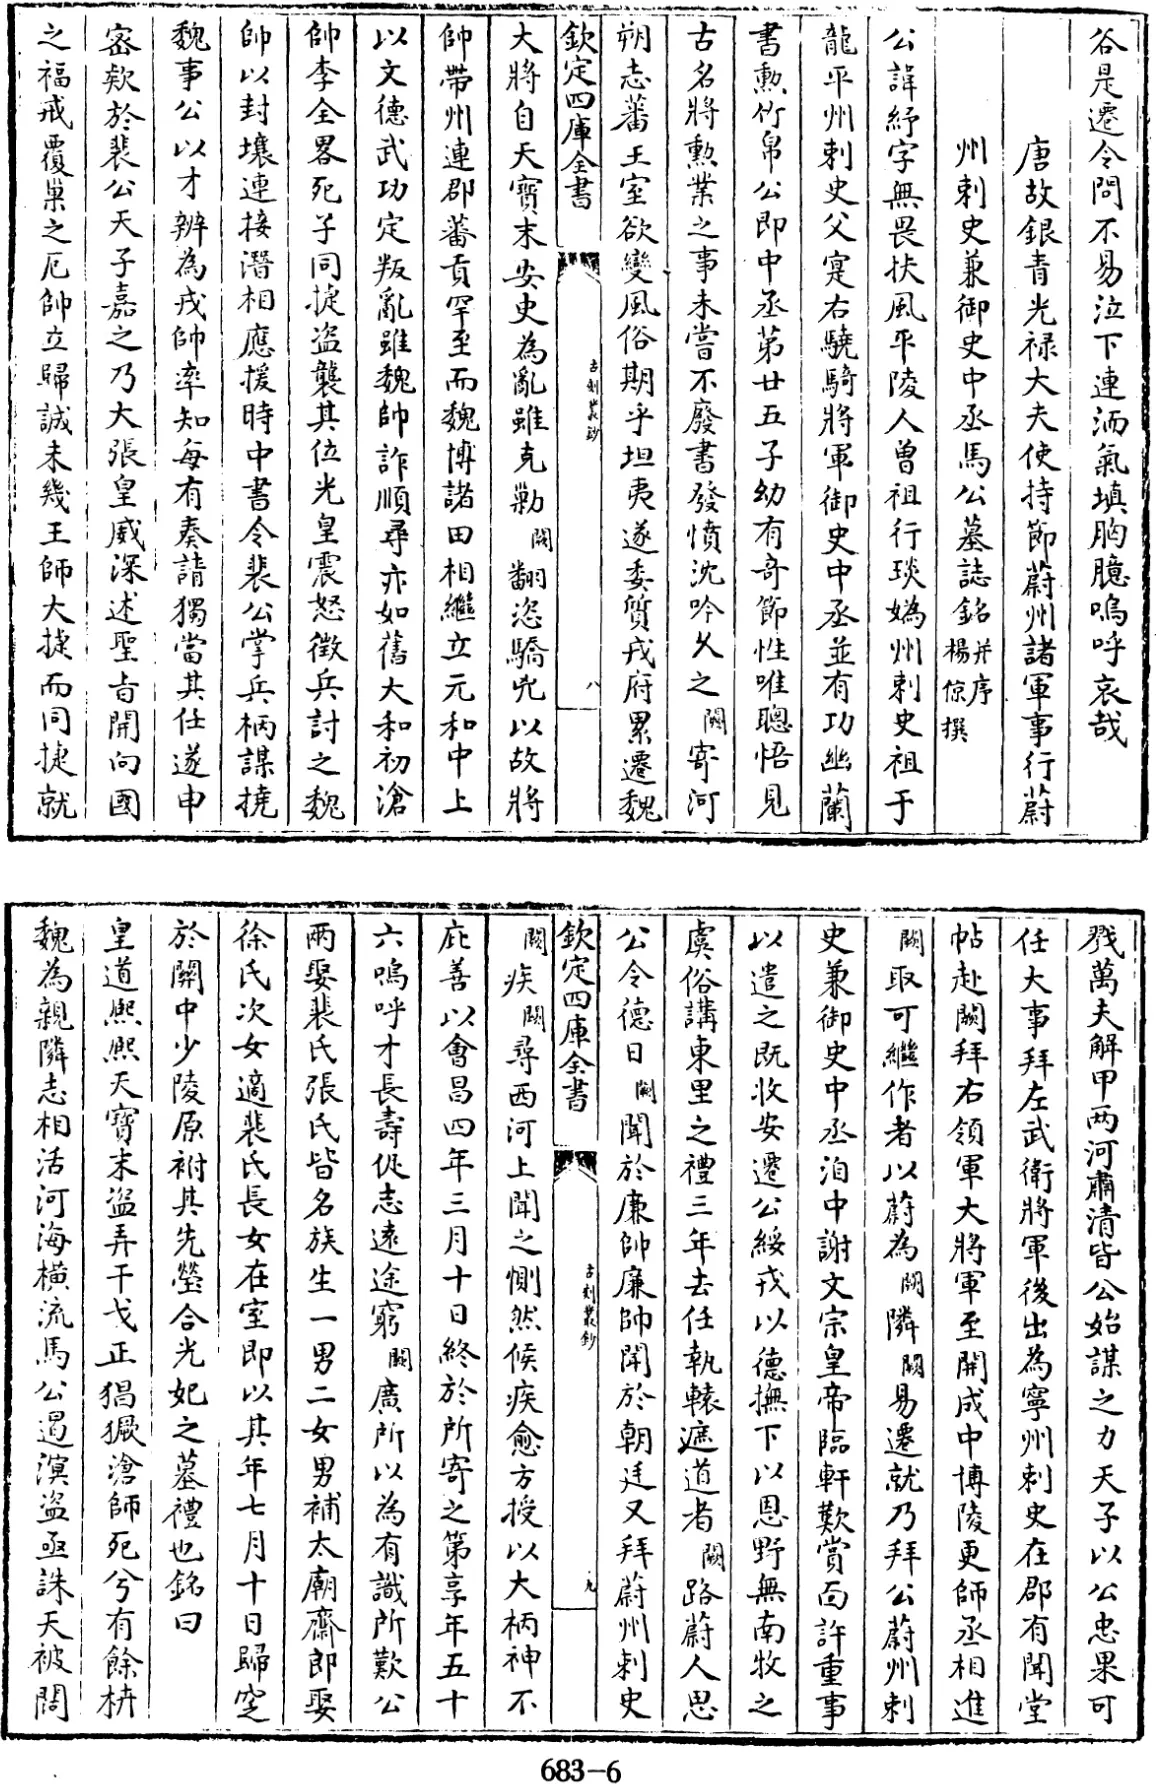 谷是遷令問不易泣下連洏氣填胸臆嗚呼哀哉
唐故銀青光禄大夫使持節蔚州諸軍事行蔚
州刺史兼御史中丞馬公墓誌銘并序楊倞撰
公諱紓字無畏扶風平陵人曾祖行琰媯州刺史祖于
龍平州刺史父寔右驍騎將軍御史中丞並有功幽蘭
書勲竹帛公即中丞第廿五子幼有奇節性唯聰悟見
古名將勲業之事未嘗不廢書發憤沈吟久之闕寄河
朔志蕃王室欲變風俗期乎坦夷遂委質戎府累遷魏
欽定四庫全書
古刻叢鈔
八
大將自天寳末安史為亂雖克勦闕翻恣驕兇以故將
帥帶州連郡蕃貢罕至而魏博諸田相繼立元和中上
以文德武功定叛亂雖魏帥詐順尋亦如舊大和初滄
帥李全畧死子同捷盜襲其位光皇震怒徵兵討之魏
帥以封壤連接潛相應援時中書令裴公掌兵柄謀撓
魏事公以才辨為戎帥率知每有奏請獨當其任遂申
密欵於裴公天子嘉之乃大張皇威深述聖㫖開向國
之福戒覆巢之厄帥立歸誠未幾王師大捷而同捷就
戮萬夫解甲两河肅清皆公始謀之力天子以公忠果可
任大事拜左武衛將軍後出為寧州刺史在郡有聞堂
帖赴闕拜右領軍大將軍至開成中博陵更師丞相進
闕取可繼作者以蔚為闕隣闕易遷就乃拜公蔚州刺
史兼御史中丞洎中謝文宗皇帝臨軒歎賞面許重事
以遣之既收安遷公綏戎以德撫下以恩野無南牧之
虞俗講東里之禮三年去任執轅遮道者闕路蔚人思
公令德日闕聞於亷帥亷帥聞於朝廷又拜蔚州刺史
欽定四庫全書
古刻叢鈔
九
闕疾闕尋西河上聞之惻然候疾愈方授以大柄神不
庇善以會昌四年三月十日終於所寄之第享年五十
六嗚呼才長壽促志遠途窮闕廣所以為有識所歎公
兩娶裴氏張氏皆名族生一男二女男補太廟齋郎娶
徐氏次女適裴氏長女在室即以其年七月十日歸窆
於關中少陵原祔其先塋合光妃之墓禮也銘曰
皇道熙熙天寳末盜弄干戈正猖獗滄師死兮有餘枿
魏為親隣志相活河海横流馬公遏溟盜亟誅天被闊
683-6